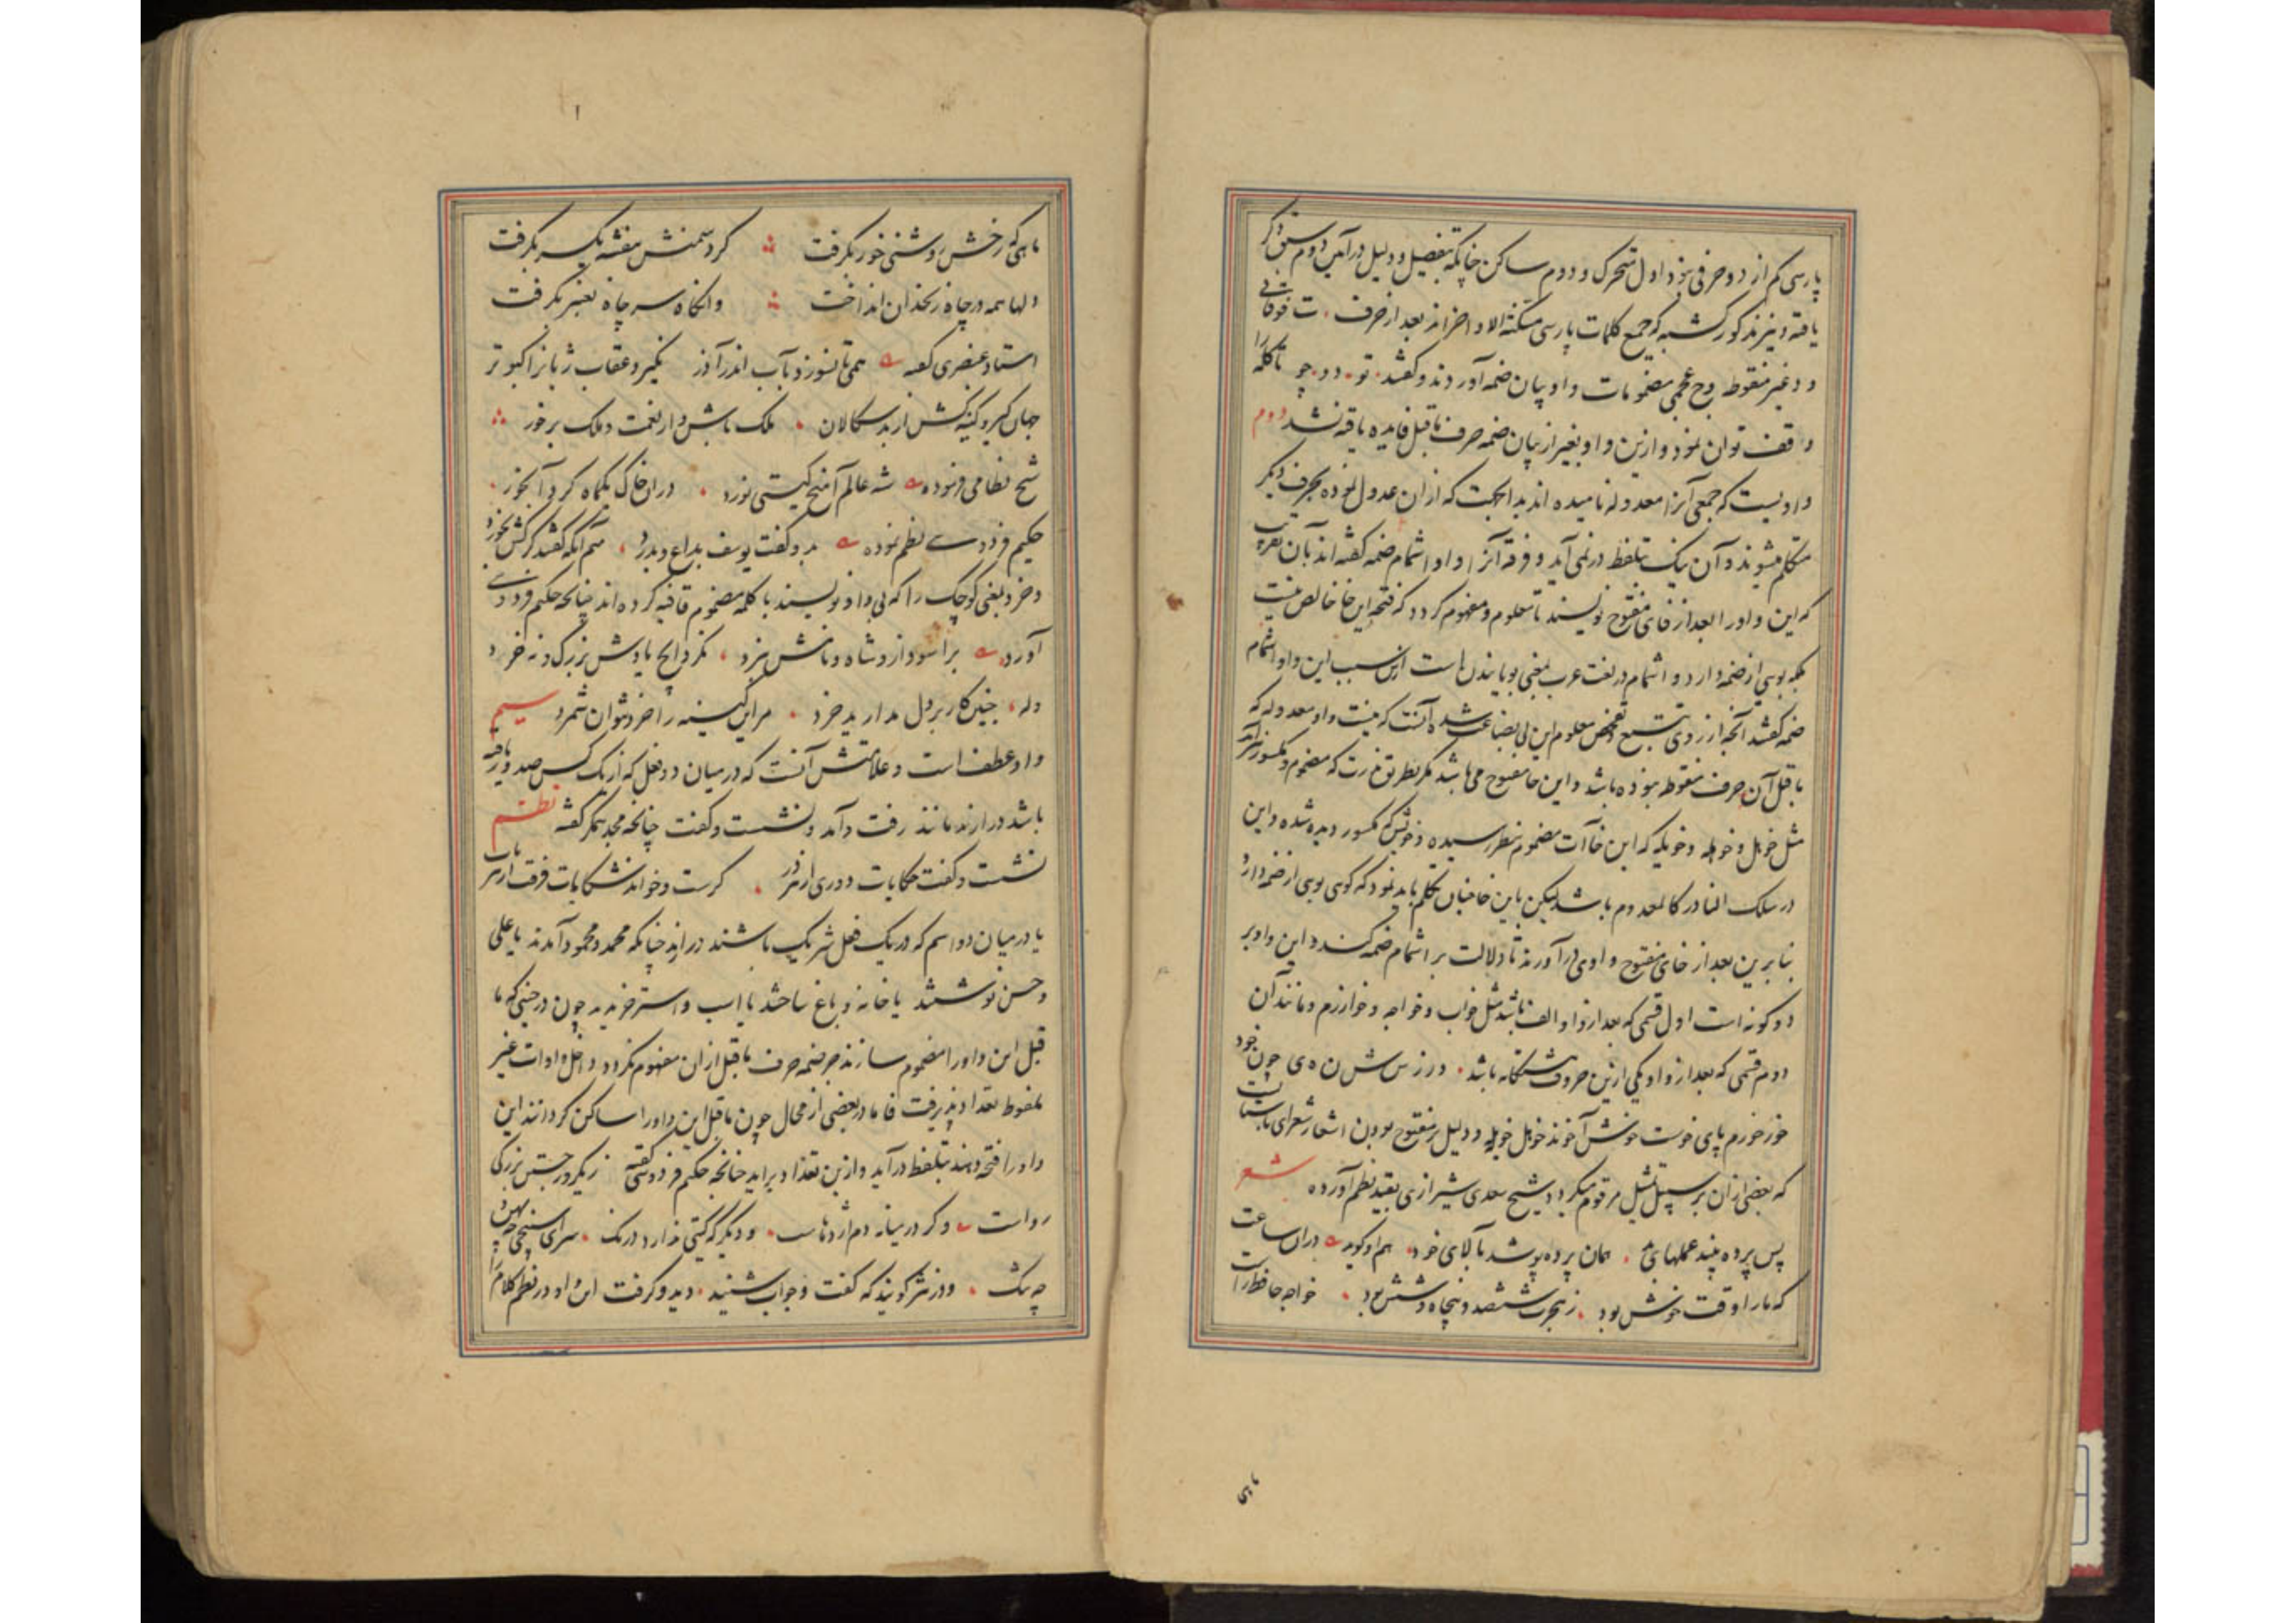 پارسی کم از دو حرفی نبود اول متحرک و دوم ساکن چنانکه بتفصیل و دلیل در آئین دوم سبق ذکر
یافته و نیز مذکور گشته که جمیع کلمات پارسی مسکنة الاواخراند بعد از حرف ت فوقانی
و د غیر منقوطه و چ عجمی مضمومات واو بیان ضمه آوردند و گفتند تو دو چو تا کلمه را
وقف توان نمود و ازین واو بغیر از بیان ضمه حرف ماقبل فایده یافته نشد دوم
واویست که جمعی آنرا معدوله نامیده اند بدانجهت که از ان عدول نموده بحرف دیگر
متکلم میشوند و آن نیک بتلفظ در نمی آید و فرقه آنرا واو اشمام ضمه گفته اند بآن تقریب
که این واو را بعد از خای مفتوح نویسند تا معلوم و مفهوم گردد که فتحه این خا خالص نیست
بلکه بویی از ضمه دارد و اشمام در لغت عرب بمعنی بویانیدن است ازین سبب این واو اشمام
ضمه گفتند آنچه از روی تتبع و تفحص معلوم این بی بضاعت شده آنست که نیست واو معدوله که
ماقبل آن حرف منقوطه نبوده باشد و این خا مفتوح می باشد مگر بطریق ندرت که مضموم و مکسور نیز آمده
مثل خوهل و خوهله و خویله که این خاآت مضموم بنظر رسیده و خویش که مکسور دیده شده و این
در سلک النادر کالمعدوم باشد لیکن باین خا چنان تکلم باید نمود که گویی بویی از ضمه دارد
بنابرین بعد از خای مفتوح واوی در آورند تا دلالت بر اشمام ضمه کند و این واو بر
دو گونه است اول قسمی که بعد از واو الف باشد مثل خواب و خواجه و خوارزم و مانند آن
دوم قسمی که بعد از واو یکی ازین حروف هشتگانه باشد د ر ز س ش ن ه ی چون خود
خور خوزم پای خوست خوش آخوند خوهل خویله و دلیل بر مفتوح بودن اشعار شعرای باستانست
که بعضی از ان بر سبیل تمثیل مرقوم میگردد شیخ سعدی شیرازی بقید نظم آورده شعر
پس پرده بیند عملهای بد همان پرده پوشد بآلای خود هم او گوید دران ساعت
که ما را وقت خوش بود ز هجرت ششصد و پنجاه و شش بود خواجه حافظ راست
ماهی که رخش روشنی خور بگرفت گرد سمنش بنفشه یکسر بگرفت
دلها همه در چاه زنخدان انداخت وانگاه سر چاه بعنبر بگرفت
استاد عنصری گفته همی تا نسوزد بآب اندر آذر نگیرد عقاب ژیان را کبوتر
جهان گیر و کینه کش از بدسگالان ملک باش و از نعمت و ملک برخور
شیخ نظامی فرموده شه عالم آهنج گیتی نورد دران خاک یکماه کرد آبخورد
حکیم فردوسی نظم نموده بدو گفت یوسف بداغ و بدرد هم آنکه گفتند گرگش بخورد
و خرد بمعنی کوچک را که بی واو نویسند با کلمه مضموم قافیه کرده اند چنانچه حکیم فردوسی
آورده برآسود ازو شاه و نامش ببرد نکرد ایچ یادش بزرگ و نه خرد
وله چنین کار بر دل مدارید خرد مر این کینه را خرد نتوان شمرد سیم
واو عطف است و علامتش آنست که در میان دو فعل که از یک کس صدور یافته
باشد در ارند مانند رفت و آمد و نشست و گفت چنانچه مجد همگر گفته نظم
نشست و گفت حکایات دوری از هر در گریست و خواند شکایات فرقت از هر باب
یا در میان دو اسم که در یک فعل شریک باشند در ارند چنانکه محمد و محمود آمدند یا علی
و حسن نوشتند یا خانه و باغ ساختند یا اسب و استر خریدند چون در حینی که ما
قبل این واو را مضموم سازند جز ضمه حرف ماقبل از ان مفهوم نگردد داخل ادات غیر
ملفوظ تعداد پذیرفت فاما در بعضی از محال چون ماقبل این واو را ساکن گردانند این
واو را فتحه دهند بتلفظ درآید و ازین تعداد براید چنانچه حکیم فردوسی گفته ز یکرو جستن بزرگی
رواست وگر در میانه دم اژدهاست و دیگر که گیتی ندارد درنگ سرای سپنجی چه پهن و
چه تنگ و در نثر گویند که گفت و جواب شنید و دید و گرفت این واو در نظم کلام را